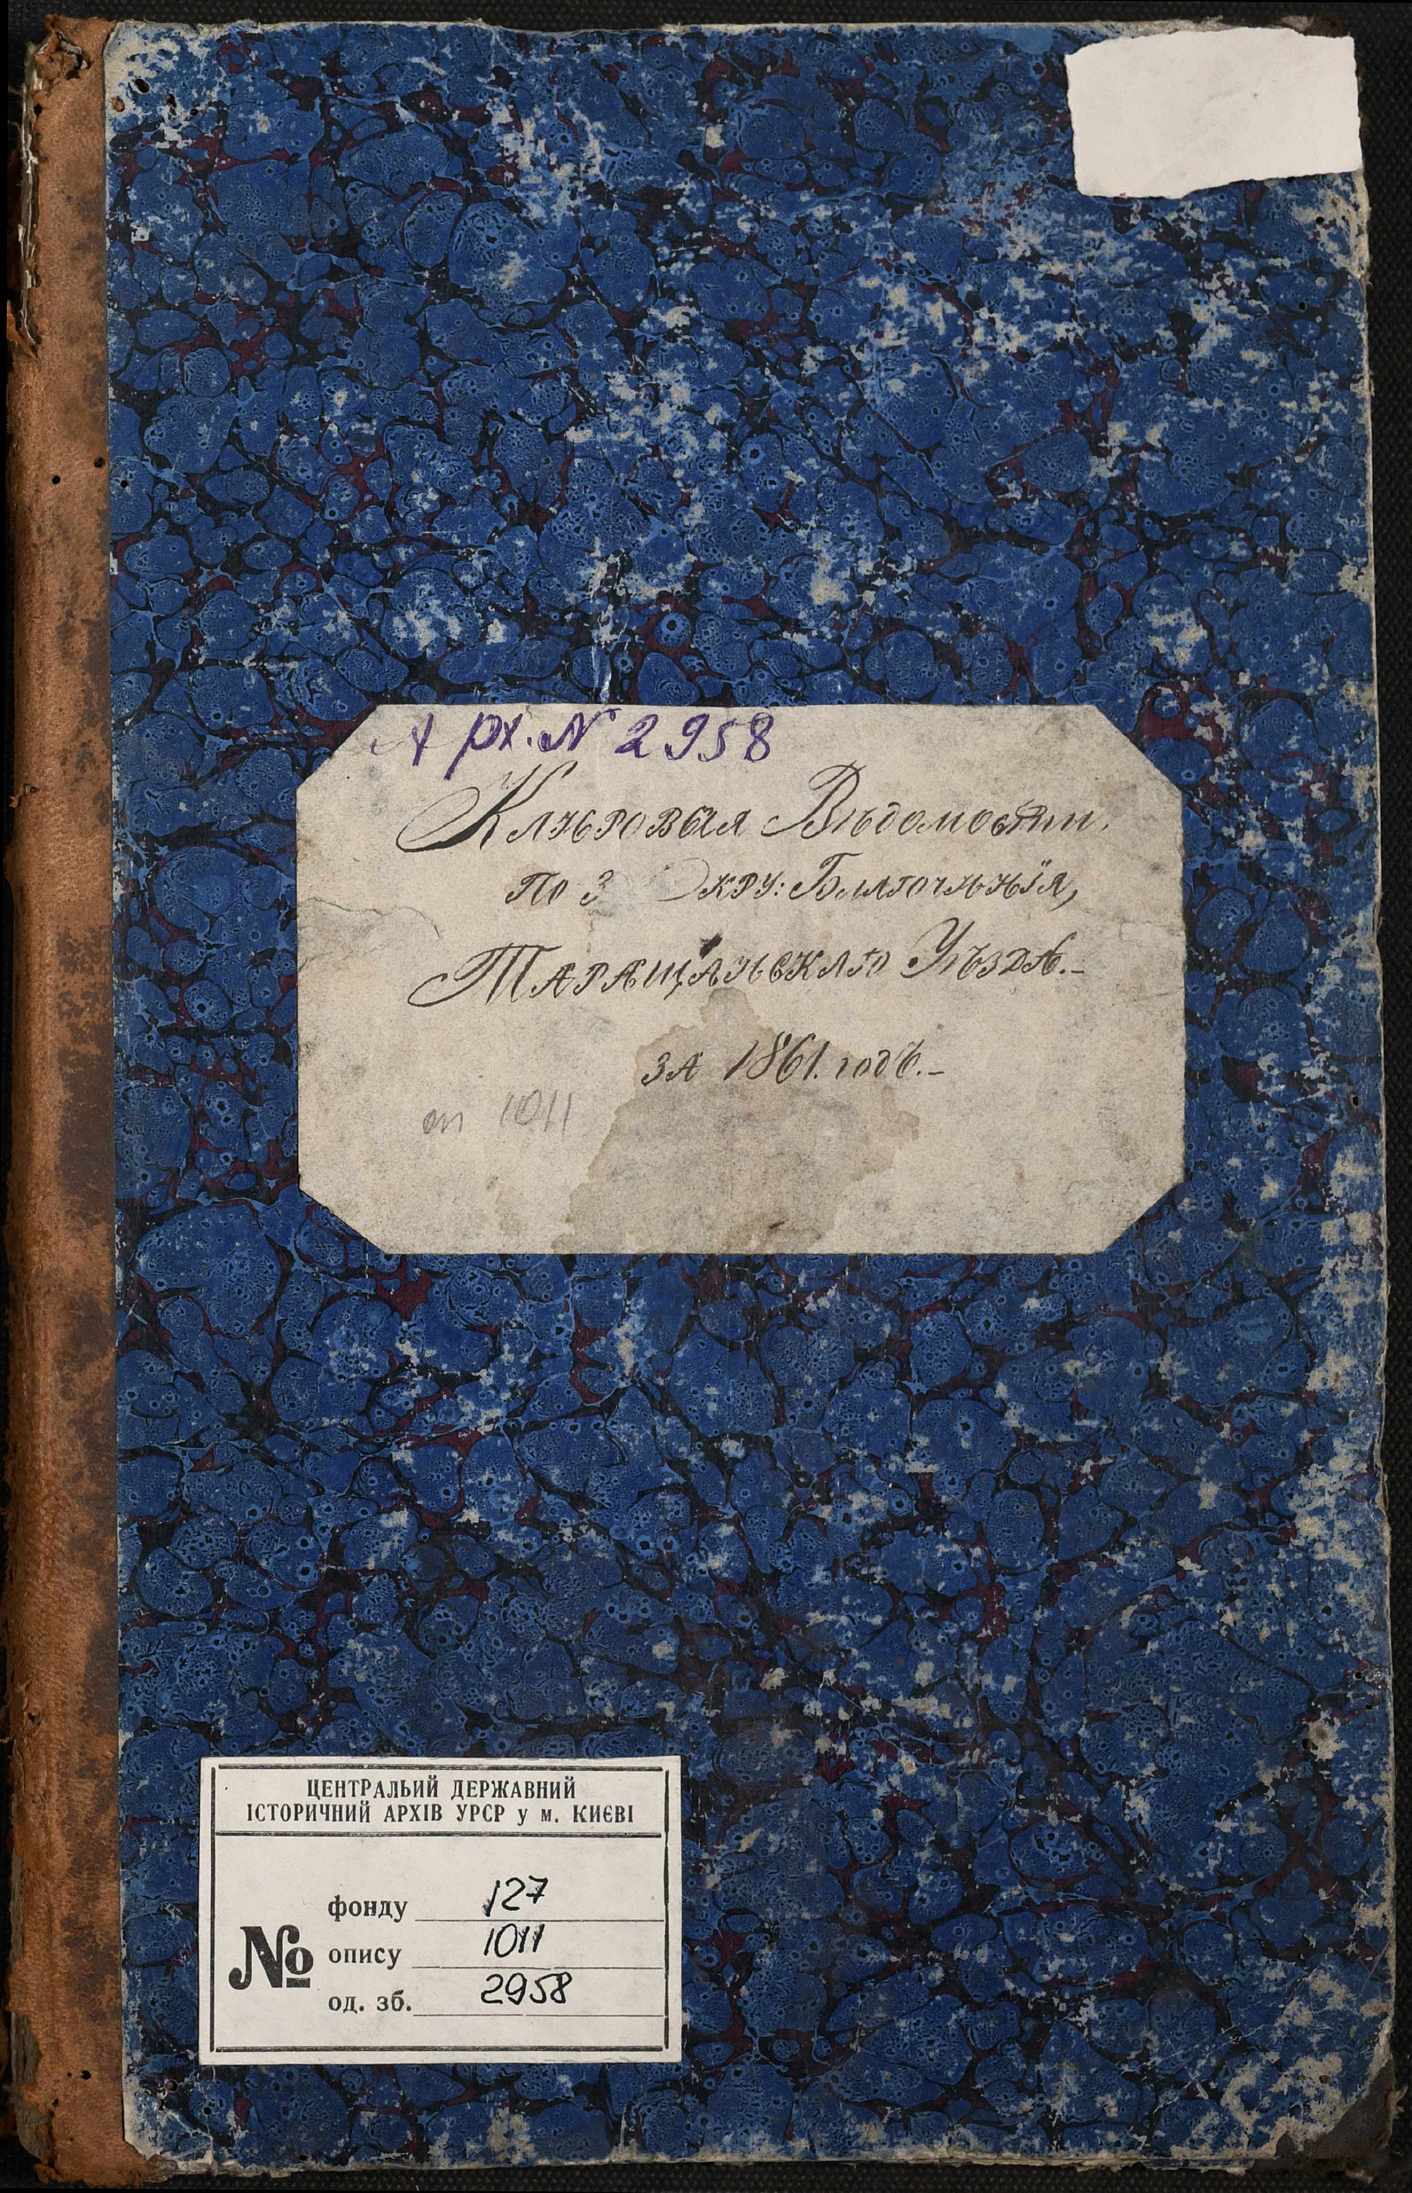 Арх. № 2958
Клировыя Вѣдомости.
По 3 Окру: Благочинія,
Таращанскаго Уѣзда.-
за 1861. годъ.-
оп 1011
ЦЕНТРАЛЬИЙ ДЕРЖАВНИЙ
ІСТОРИЧНИЙ АРХІВ УРСР у м. КИЄВІ
№
фонду 127
опису 1011
од. зб. 2958